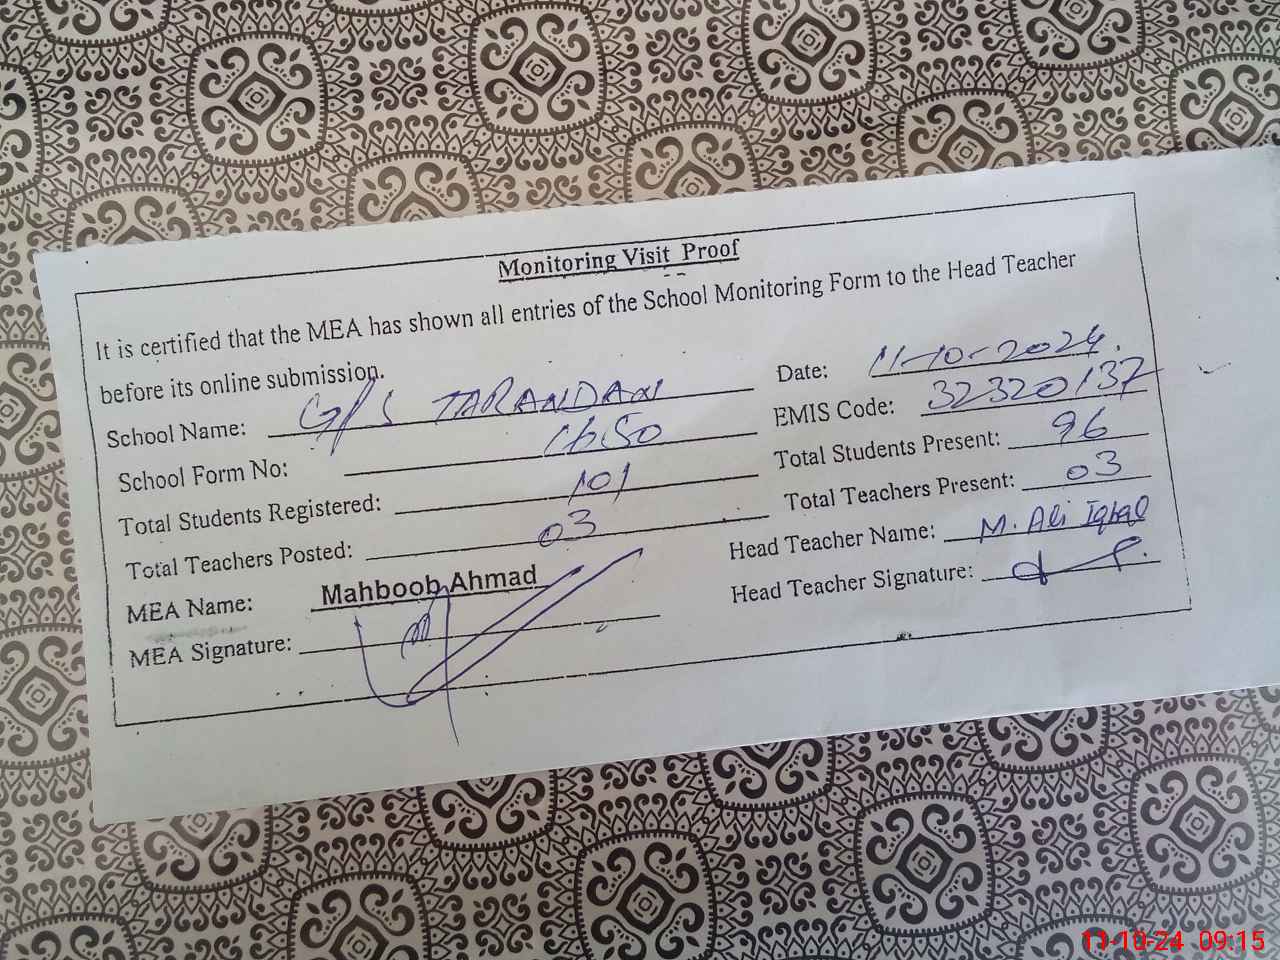 Monitoring Visit Proof
It is certified that the MEA has shown all entries of the School Monitoring Form to the Head Teacher
before its online submission.
School Name: G/P/S TARANDAN Date: 11-10-2024.
School Form No: 1650 EMIS Code: 32320137
Total Students Registered: 101 Total Students Present: 96
Total Teachers Posted: 03 Total Teachers Present: 03
MEA Name: Mahboob Ahmad Head Teacher Name: M. Ali Iqbal
MEA Signature: Head Teacher Signature:
11-10-24 09:15